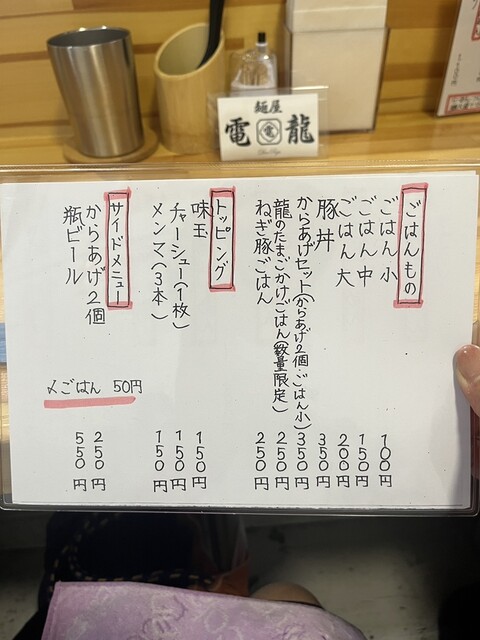 麺屋
電龍
ごはんもの
ごはん 小 100円
ごはん 中 150円
ごはん 大 200円
豚丼 350円
からあげセット(からあげ2個・ごはん小) 350円
龍のたまごかけごはん(数量限定) 250円
ねぎ豚ごはん 250円
トッピング
味玉 150円
チャーシュー(1枚) 150円
メンマ(3本) 150円
サイドメニュー
からあげ2個 250円
瓶ビール 550円
〆ごはん 50円